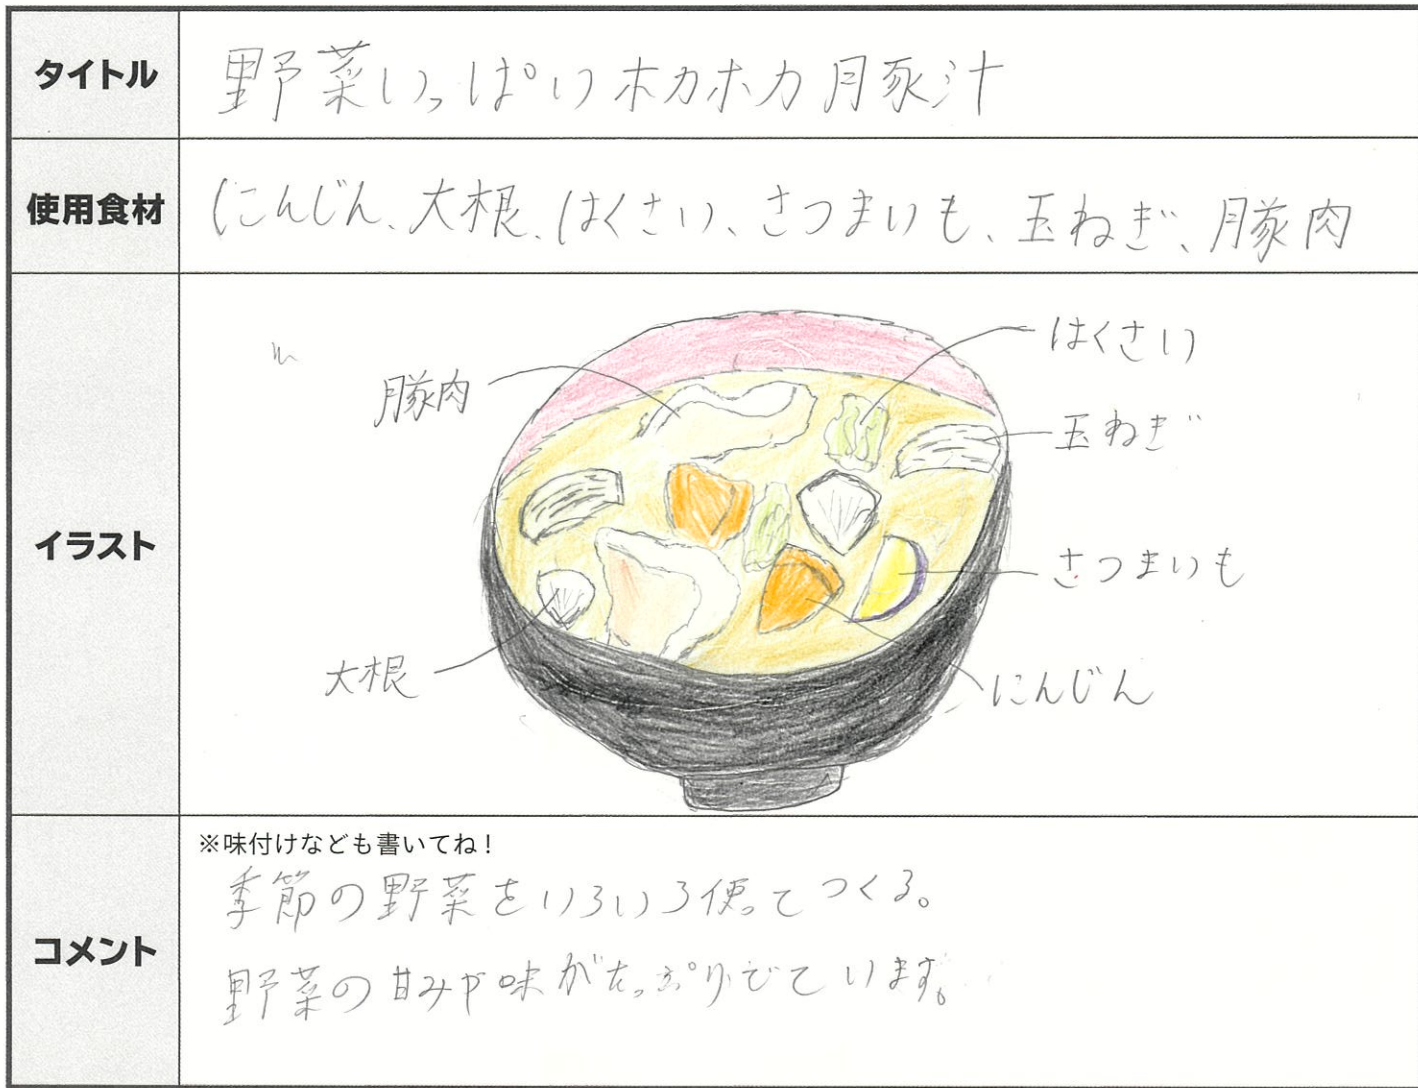 タイトル
野菜いっぱいホカホカ豚汁
使用食材
にんじん、大根、はくさい、さつまいも、玉ねぎ、豚肉
イラスト
豚肉
はくさい
玉ねぎ
さつまいも
大根
にんじん
コメント
※味付けなども書いてね!
季節の野菜をいろいろ使ってつくる。
野菜の甘みや味がたっぷりでています。